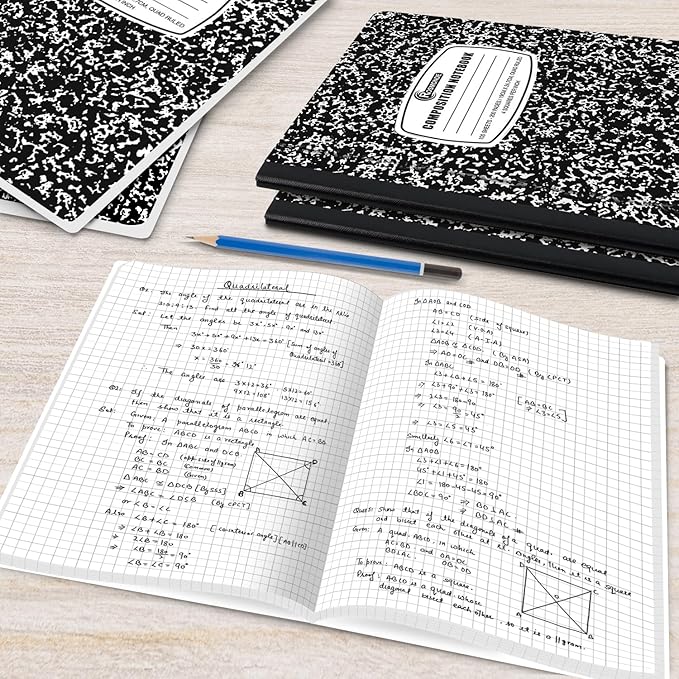 COMPOSITION NOTEBOOK
4 SQUARES PER INCH
Quadrilateral
The angle of the quadrilateral are in the ratio
3:5:9:13. Find all the angle of quadrilateral
Sol: Let the angles be 3x°, 5x°, 9x° and 13x°
Then 3x+5x+9x+13x = 360 [Sum of angles of
Quadrilateral = 360°]
⇒ 30x = 360°
x = 360/30 = 12°
The angles are 3×12=36° 5×12=60°
9×12=108° 13×12=156°
Q2: If the diagonals of parallelogram are equal
then show that it is a rectangle.
Given: A parallelogram ABCD in which AC=BD
To prove: ABCD is a rectangle
Proof: In ΔABC and DCB
AB = CD (opp. side of ||gram)
BC = BC (Common)
AC = BD (Given)
ΔABC ≅ ΔDCB [By SSS]
⇒ ∠ABC = ∠DCB (By CPCT)
or ∠B = ∠C
Also ∠B + ∠C = 180°
⇒ ∠B + ∠B = 180
⇒ 2∠B = 180
⇒ ∠B = 180/2 = 90°
∠B = ∠C = 90°
In ΔAOB and COD
AB = CD (side of square)
∠1 = ∠2 (V.O.A)
∠3 = ∠4 (A.I.A)
ΔAOB ≅ ΔCOD (By ASA)
⇒ AO = OC and OB = OD (By CPCT)
∠3 + ∠B + ∠5 = 180°
⇒ ∠3 + 90° + ∠3 = 180°
[AB = BC
⇒ ∠3 = ∠5]
⇒ 2∠3 = 180 - 90
⇒ ∠3 = 90/2 = 45°
⇒ ∠3 = ∠5 = 45°
Similarly ∠6 = ∠7 = 45°
In ΔAOB
∠3 + ∠1 + ∠6 = 180°
45° + ∠1 + 45° = 180
∠1 = 180 - 45 - 45 = 90°
∠BOC = 90° ⇒ BO ⊥ AC
⇒ BD ⊥ AC
Show that if the diagonals of a quad. are equal
and bisect each other at rt. angles, then it is a square
Given: A quad. ABCD in which
AC = BD and OA = OC
BD ⊥ AC OB = OD
To prove: ABCD is a square
Proof: ABCD is a quad. whose
diagonal bisect each other, so it is a ||gram.